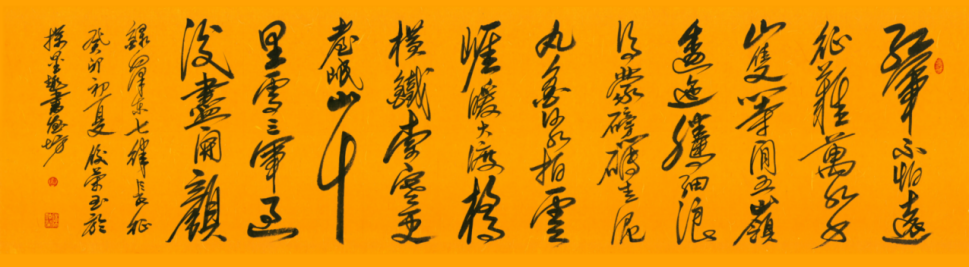 紅軍不怕遠
征難萬水千
山隻等閒五嶺
逶迤騰細浪
烏蒙磅礴走泥
丸金沙水拍雲
崖暖大渡橋
橫鐵索寒更
喜岷山千
里雪三軍過
後盡開顏
錄毛澤東七律長征
癸卯初夏